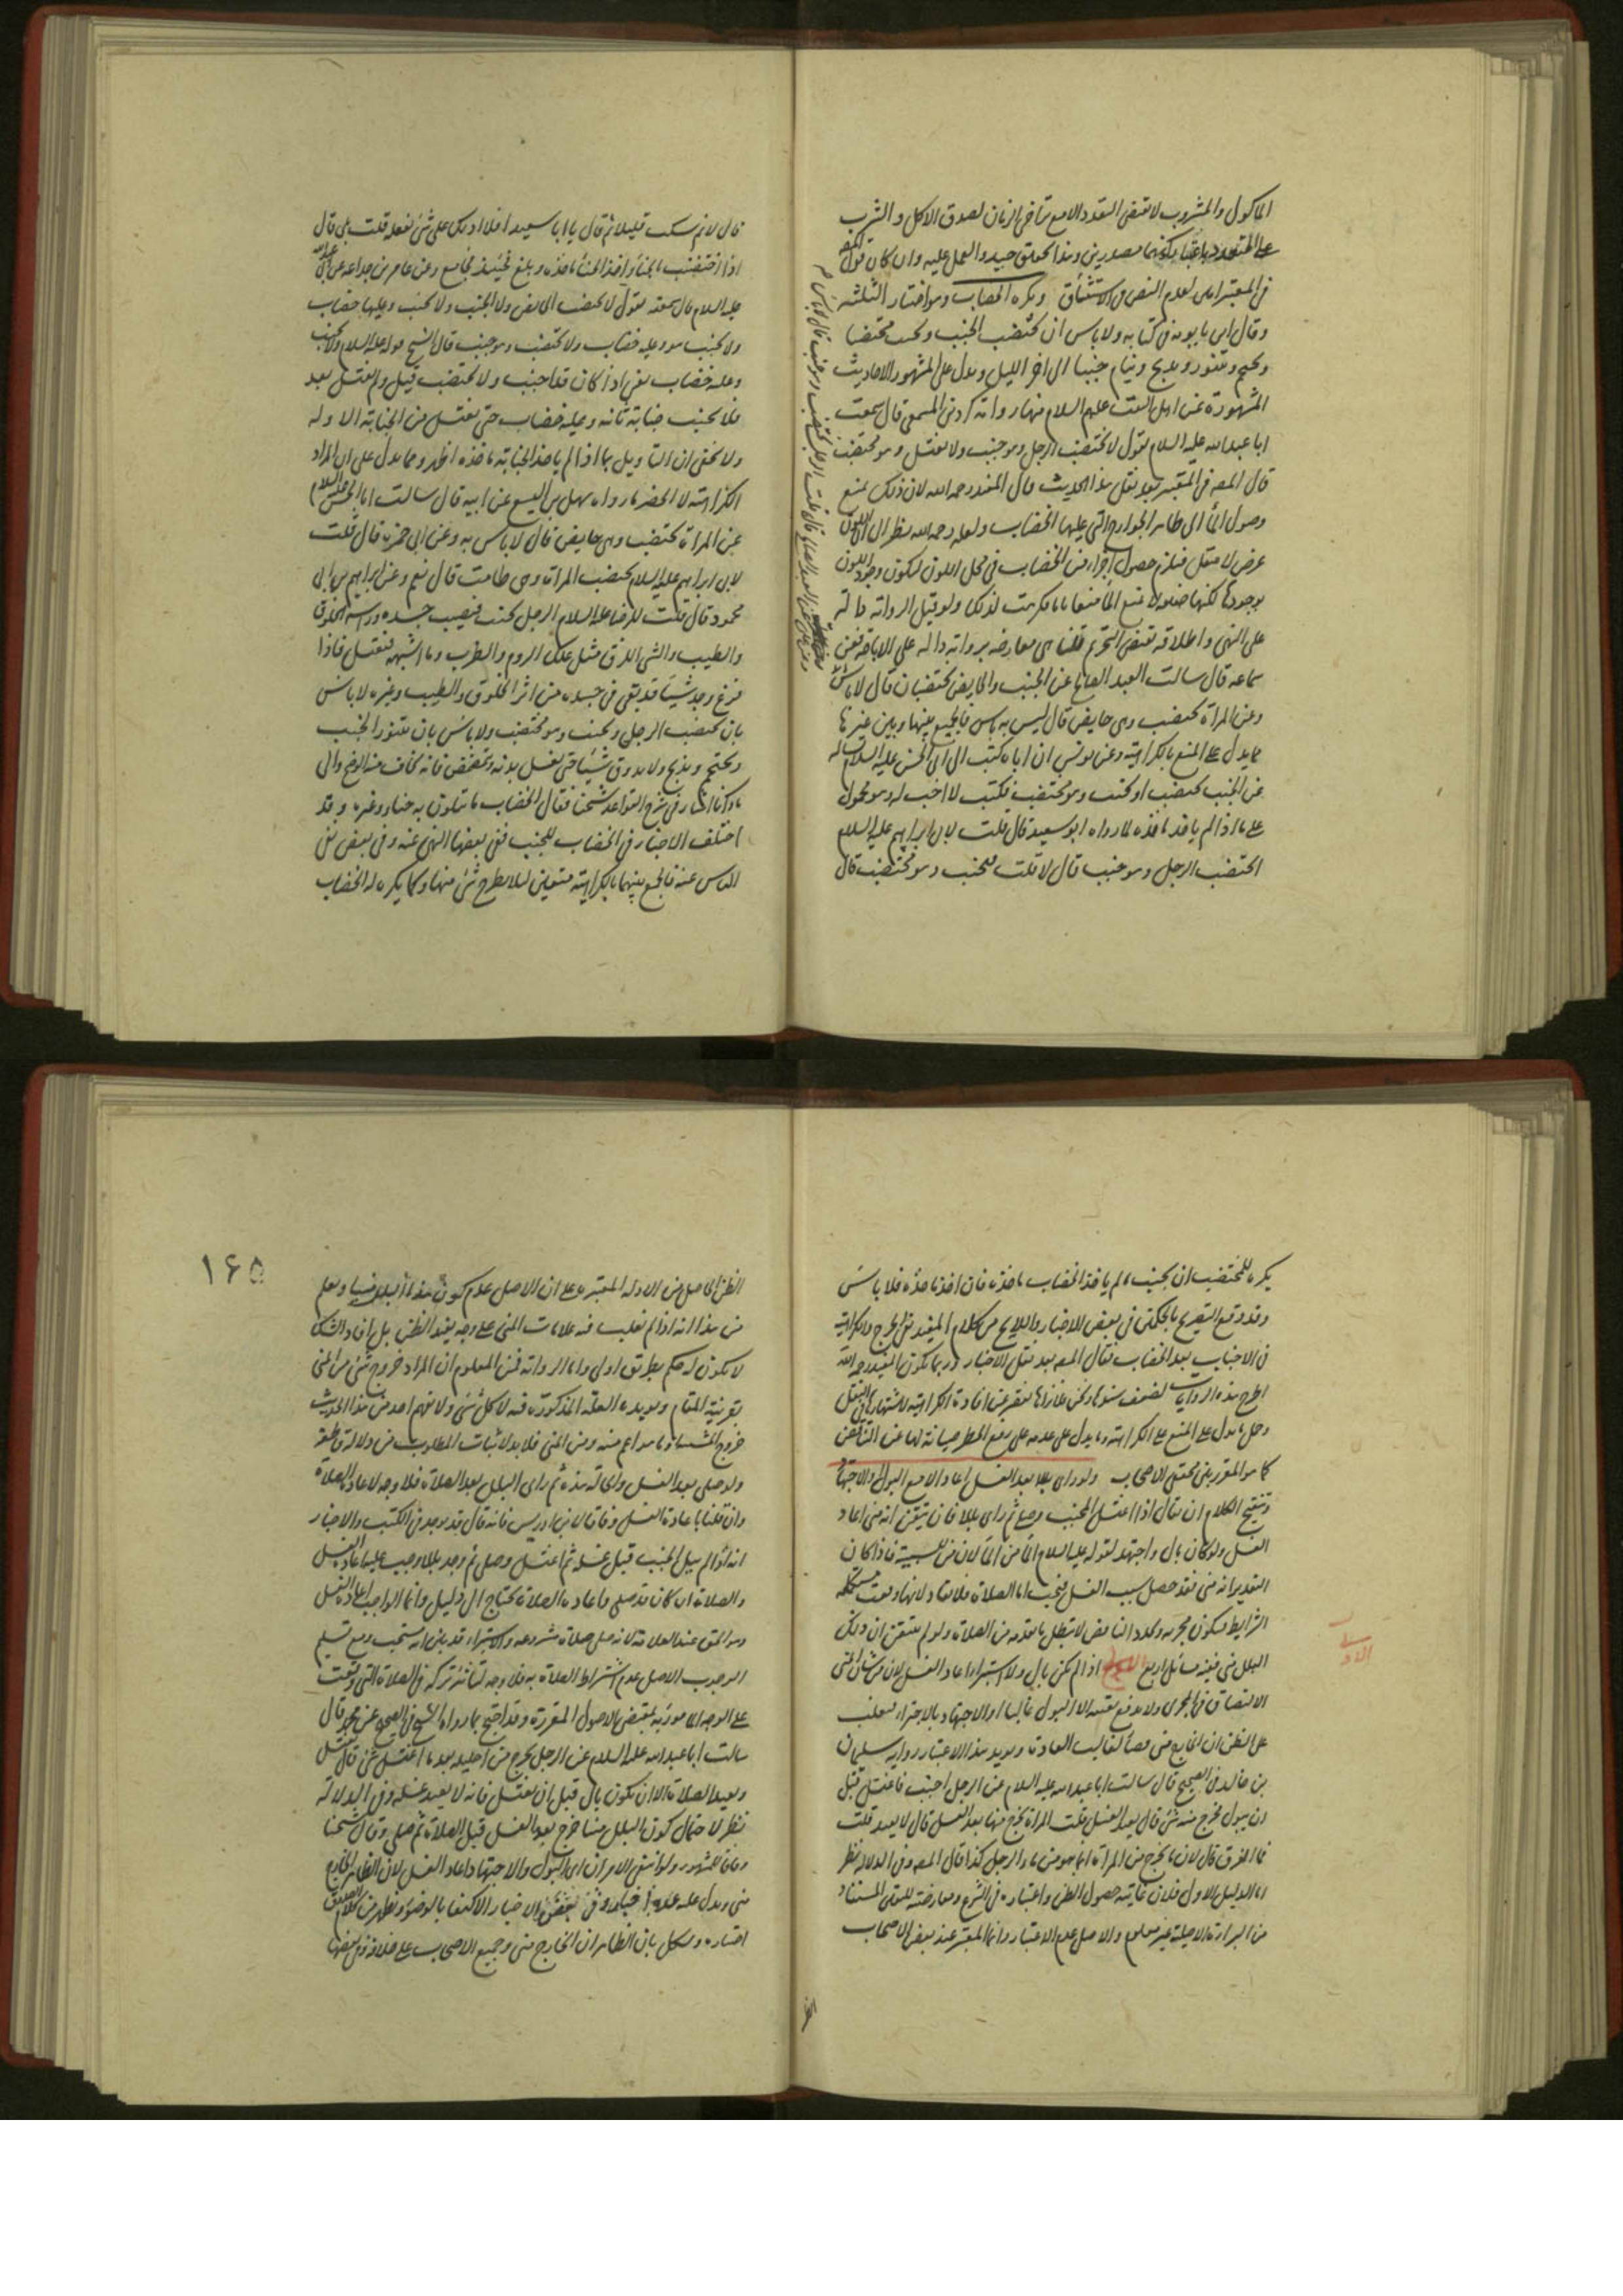 الماكول والمشروب لا تقتضي التعدد الا مع تراخي الزمان لصدق الاكل والشرب
على المتعدد باعتبار كونهما مصدرين وهذا تحقيق جيد والعمل عليه وان كان قول المص
في المعتبر اولى لعدم النص في الاستنشاق ويكره الخضاب وهو اختيار الثلثه
وقال ابن بابويه في كتابه ولا باس ان يختضب الجنب ويجنب مختضبا
ويحتجم ويتنور ويذبح وينام جنبا الى اخر الليل ويدل على المشهور الاحاديث
المشهورة عن اهل البيت عليهم السلام منها رواية كردين المسمعي قال سمعت
ابا عبد الله عليه السلام يقول لا يختضب الرجل وهو جنب ولا يغتسل وهو مختضب
قال المصر في المعتبر بعد نقل هذا الحديث قال المفيد رحمه الله لان ذلك يمنع
وصول الما الى ظاهر الجوارح التي عليها الخضاب ولعله رحمه الله نظر الى ان اللون
عرض لا ينتقل فيلزم حصول اجزاء من الخضاب في محل اللون ليكون وجود اللون
بوجودها لكنها خفيفة لا تمنع الما منعا تاما فكرهت لذلك ولو قيل الرواية دالة
على النهي واطلاقه يقتضي التحريم قلنا هي معارضة برواية دالة على الاباحة فعن
سماعه قال سالت العبد الصالح عن الجنب والحايض يختضبان قال لا باس
وعن المراة تختضب وهي حايض قال ليس به باس فالجمع بينها وبين غيرها
مما يدل على المنع بالكراهية وعن يونس ان اباه كتب الى ابي الحسن عليه السلام يساله
عن الجنب يختضب او يجنب وهو مختضب فكتب لا احب له وهو محمول
على ما اذا لم ياخذ ماخذه لما رواه ابو سعيد قال قلت لابي ابراهيم عليه السلام
ايختضب الرجل وهو جنب قال لا قلت فيجنب وهو مختضب قال
قال لا ثم سكت قليلا ثم قال يا ابا سعيد افلا ادلك على شئ تفعله قلت بلى قال
اذا اختضبت بالحنا واخذ الحنا ماخذه وبلغ فحينئذ فجامع وعن عامر بن جداعه عن ابي عبد الله
عليه السلام قال سمعته يقول لا تختضب الحايض ولا الجنب ولا تجنب وعليها خضاب
ولا يجنب هو وعليه خضاب ولا يختضب وهو جنب قال الشيخ قوله عليه السلام ولا يجنب
وعليه خضاب يعني اذا كان قد اجنب ولا يختضب قيل ولم يغتسل بعد
فلا يجنب جنابة ثانية وعليه خضاب حتى يغتسل من الجنابة الاوله
ولا يخفى ان التاويل بما اذا لم ياخذ الحنا ماخذه اظهر ومما يدل على ان المراد
الكراهية لا الحضر ما رواه سهل بن اليسع عن ابيه قال سالت ابا الحسن عليه السلام
عن المراة تختضب وهي حايض قال لا باس به وعن ابي حمزه قال قلت
لابي ابراهيم عليه السلام تختضب المراة وهي طامث قال نعم وعن ابراهيم بن ابي
محمود قال قلت للرضا عليه السلام الرجل يجنب فيصيب جسده وراسه الخلوق
والطيب والشي اللزق مثل علك الروم والطرب وما اشبهه فيغتسل فاذا
فرغ وجد شيئا قد بقي في جسده من اثر الخلوق والطيب وغيره لا باس
بان يختضب الرجل ويجنب وهو مختضب ولا باس بان يتنور الجنب
ويحتجم ويذبح ولا يذوق شيئا حتى يغسل يديه ويتمضمض فانه يخاف منه الوضح والى
ما ذكرنا اشار في شرح القواعد شيخنا فقال الخضاب ما يتلون به حناء وغيره وقد
اختلف الاخبار في الخضاب للجنب ففي بعضها النهي عنه وفي بعض نفي
الباس عنه فالجمع بينهما بالكراهية متعين لئلا يطرح شئ منها وكما يكره له الخضاب
يكره للمختضب ان يجنب ما لم ياخذ الخضاب ماخذه فان اخذ ماخذه فلا باس
وقد وقع التصريح بالحكمين في بعض الاخبار واللايح من كلام المفيد نفي الحرج والكراهية
في الاجناب بعد الخضاب فقال المصر بعد نقل الاخبار وربما يكون المفيد رحمه الله
اطرح هذه الروايات لضعف سندها ونحن غير انها تقصر عن افادة الكراهية لاشتهارها في النقل
وحمل ما دل على المنع على الكراهية وما يدل على عدمه على رفع الحظر صيانة لها عن التناقض
كما هو المقرر بين محققي الاصحاب ولو راى بللا بعد الغسل اعاد الا مع البول والاجتهاد
وتنقيح الكلام ان يقال اذا اغتسل المجنب وصلى ثم راى بللا فان تيقن انه مني اعاد
الغسل ولو كان بال واجتهد لقوله عليه السلام الما من الما لان من للسببية فاذا كان
التقدير انه مني فقد حصل سبب الغسل فيجب اما الصلاة فلا تعاد لانها وقعت مستكملة
الشرايط فتكون مجزية وتجدد الناقض لا يبطل ما تقدمه من الصلاة ولو لم يتيقن ان ذلك
البلل مني ففيه مسائل اربع الاولى اذا لم يكن بال ولا استبرا اعاد الغسل لان من شان المني
الالتصاق في المجرى ولا يدفع بقيته الا البول غالبا او الاجتهاد بالاجتراء فيغلب
على الظن ان الخارج مني قضاء لغالب العادة ويؤيد هذا الاعتبار رواية سليمان
بن خالد في الصحيح قال سالت ابا عبد الله عليه السلام عن الرجل اجنب فاغتسل قبل
ان يبول فخرج منه شئ قال يعيد الغسل قلت المراة يخرج منها بعد الغسل قال لا يعيد قلت
فما الفرق قال لان ما يخرج من المراة انما هو من ماء الرجل كذا قال المصر وفي الدلالة نظر
اما الدليل الاول فلان غايته حصول الظن واعتباره في الشرع ومعارضته لليقين المستفاد
من البراءة الاصلية غير معلوم والاصل عدم الاعتبار وانما المعتبر عند بعض الاصحاب
الاولى
١٦٥
الظن الحاصل من الادلة المعتبرة على ان الاصل عدم كون هذا البلل منيا ويعلم
من هذا انه اذا لم تغلب فيه علامات المني على وجه يفيد الظن بل افاد الشك
لا يكون له حكم بطريق اولى واما الرواية فمن المعلوم ان المراد خروج شئ من المني
بقرينة المقام ويؤيده العلة المذكورة فيه لا كل شئ ولا يفهم احد من هذا الحديث
خروج المشتبه وما هو اعم منه ومن المني فلا بد لاثبات المطلوب من دلالة قاطعة
ولو صلى بعد الغسل والحالة هذه ثم راى البلل بعد الصلاة فلا وجه لاعادة الصلاة
وان قلنا باعادة الغسل وفاقا لابن ادريس فانه قال قد يوجد في الكتب والاخبار
انه اذا لم يبل الجنب قبل غسله ثم اغتسل وصلى ثم وجد بللا وجب عليه اعادة الغسل
والصلاة ان كان قد صلى واعادة الصلاة تحتاج الى دليل وانما الواجب اعادة الغسل
وهو الحق عند العلامة لانه صلى صلاة مشروعه والاستبراء قد بين انه مستحب ومع تسليم
الوجوب الاصل عدم اشتراط الصلاة به فلا وجه لتاثير تركه في الصلاة التي وقعت
على الوجه المامور به بمقتضى الاصول المقررة وقد احتج بما رواه الشيخ في الصحيح عن محمد قال
سالت ابا عبد الله عليه السلام عن الرجل يخرج من احليله بعد ما اغتسل شئ قال يغتسل
ويعيد الصلاة الا ان يكون بال قبل ان يغتسل فانه لا يعيد غسله وفي الدلالة
نظر لاحتمال كون البلل منيا خرج بعد الغسل قبل الصلاة ثم صلى وقال شيخنا
وفاقا للمشهور ولو انتفى الامران اي البول والاجتهاد اعاد الغسل لان الظاهر ان الخارج
مني ويدل عليه عدة اخبار وفي بعض الاخبار الاكتفا بالوضوء ويظهر من كلام الصدوق
اختياره ويشكل بان الظاهر ان الخارج مني وجميع الاصحاب على خلافه وفي بعضها